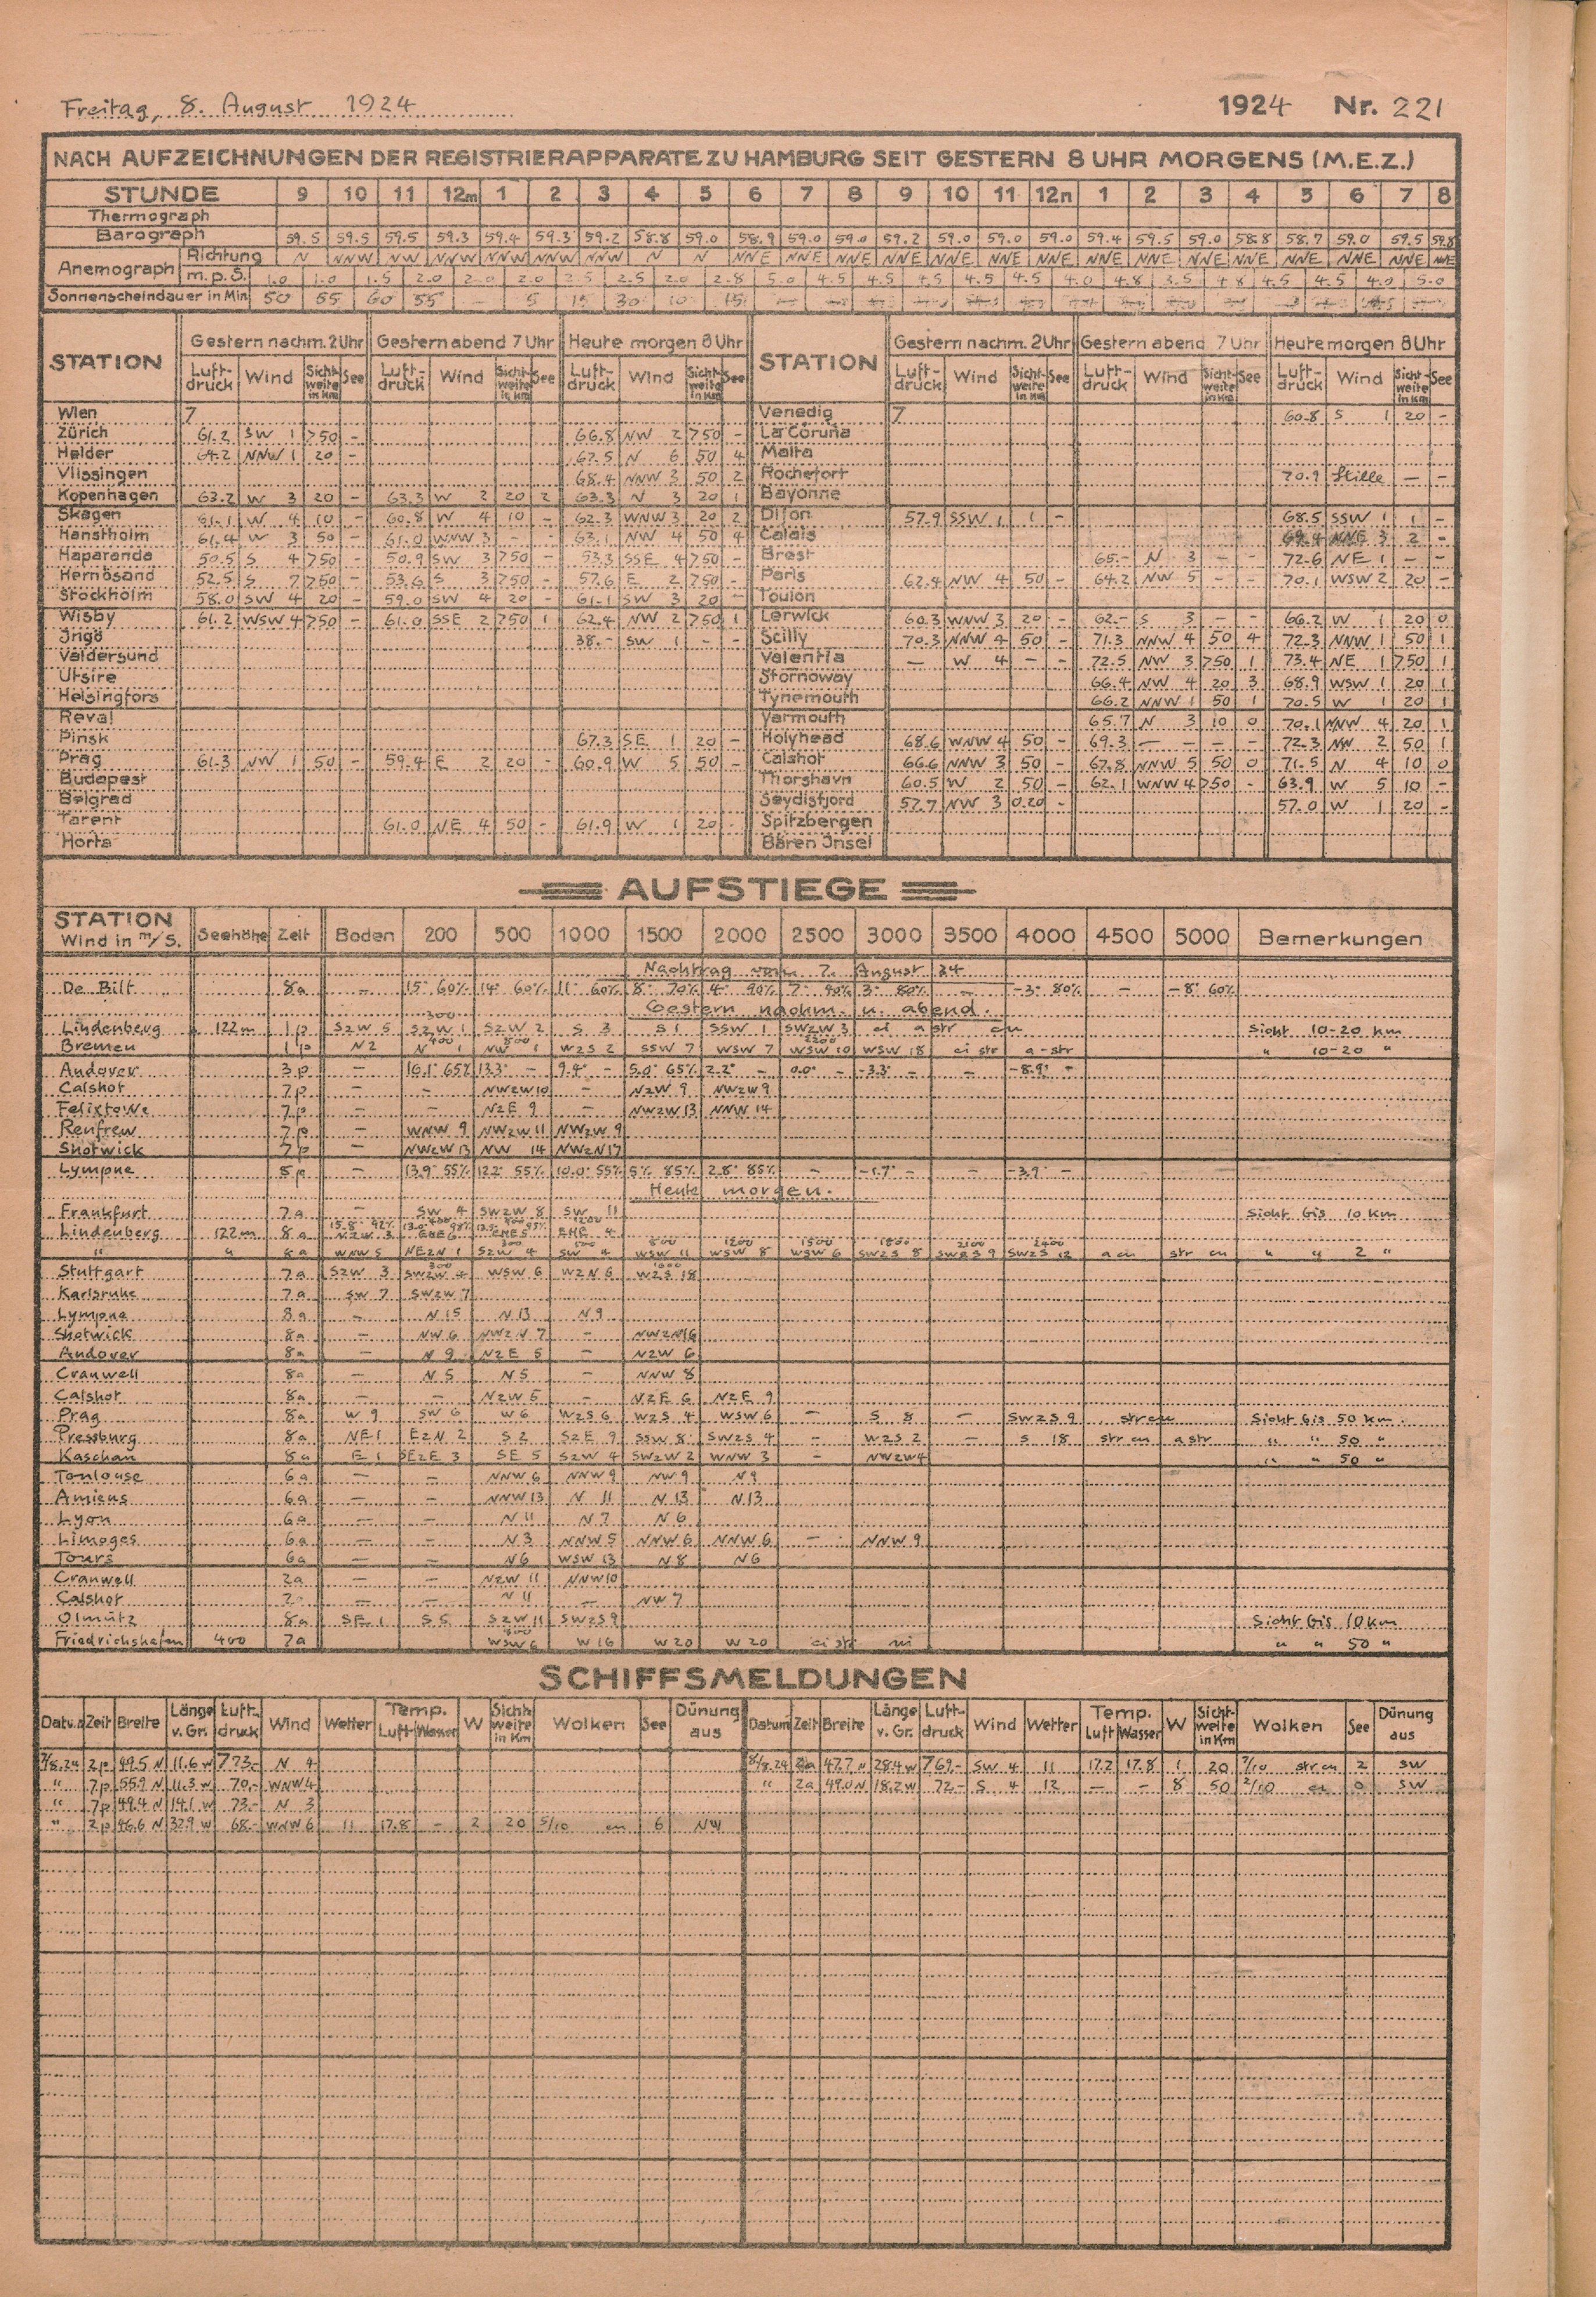 Freitag, 8. August 1924
1924 Nr. 221
NACH AUFZEICHNUNGEN DER REGISTRIERAPPARATE ZU HAMBURG SEIT GESTERN 8 UHR MORGENS (M.E.Z.)
STUNDE 9 10 11 12m 1 2 3 4 5 6 7 8 9 10 11 12n 1 2 3 4 5 6 7 8
Thermograph
Barograph 59.5 59.5 59.5 59.3 59.4 59.3 59.2 58.8 59.0 58.9 59.0 59.0 59.2 59.0 59.0 59.0 59.4 59.5 59.0 58.8 58.7 59.0 59.5 59.8
Anemograph Richtung N NNW NW NNW NNW NNW NNW N N NNE NNE NNE NNE NNE NNE NNE NNE NNE NNE NNE NNE NNE NNE NNE
m.p.S. 1.0 1.0 1.5 2.0 2.0 2.0 2.5 2.5 2.0 2.8 5.0 4.5 4.5 4.5 4.5 4.5 4.0 4.8 3.5 4.8 4.5 4.5 4.0 5.0
Sonnenscheindauer in Min 50 55 60 55 - 5 15 30 10 15
STATION Gestern nachm. 2 Uhr Gestern abend 7 Uhr Heute morgen 8 Uhr STATION Gestern nachm. 2 Uhr Gestern abend 7 Uhr Heute morgen 8 Uhr
Luftdruck Wind Sichtweite in Km See Luftdruck Wind Sichtweite in Km See Luftdruck Wind Sichtweite in Km See Luftdruck Wind Sichtweite in Km See Luftdruck Wind Sichtweite in Km See Luftdruck Wind Sichtweite in Km See
Wien 7 Venedig 7 60.8 S 1 20 -
Zürich 61.2 SW 1 >50 - 66.8 NW 2 >50 - La Coruña
Helder 64.2 NNW 1 20 - 67.5 N 6 50 4 Malta
Vlissingen 68.4 NNW 3 50 2 Rochefort 70.9 Stille - -
Kopenhagen 63.2 W 3 20 - 63.3 W 2 20 2 63.3 N 3 20 1 Bayonne
Skagen 61.1 W 4 10 - 60.8 W 4 10 - 62.3 WNW 3 20 2 Dijon 57.9 SSW 1 1 - 68.5 SSW 1 1 -
Hanstholm 61.4 W 3 50 - 61.0 WNW 3 - - 63.1 NW 4 50 4 Calais 69.4 NNE 3 2 -
Haparanda 50.5 S 4 >50 - 50.9 SW 3 >50 - 53.3 SSE 4 >50 - Brest 65.- N 3 - - 72.6 NE 1 - -
Hernösand 52.5 S 7 >50 - 53.6 S 3 >50 - 57.6 E 2 >50 - Paris 62.4 NW 4 50 - 64.2 NW 5 - - 70.1 WSW 2 20 -
Stockholm 58.0 SW 4 20 - 59.0 SW 4 20 - 61.1 SW 3 20 - Toulon
Wisby 61.2 WSW 4 >50 - 61.0 SSE 2 >50 1 62.4 NW 2 >50 1 Lerwick 60.3 WNW 3 20 - 62.- S 3 - - 66.2 W 1 20 0
Jngö 38.- SW 1 - - Scilly 70.3 NNW 4 50 - 71.3 NNW 4 50 4 72.3 NNW 1 50 1
Valdersund Valentia - W 4 - - 72.5 NW 3 >50 1 73.4 NE 1 >50 1
Utsire Stornoway 66.4 NW 4 20 3 68.9 WSW 1 20 1
Helsingfors Tynemouth 66.2 NNW 1 50 1 70.5 W 1 20 1
Reval Yarmouth 65.7 N 3 10 0 70.1 NNW 4 20 1
Pinsk 67.3 SE 1 20 - Holyhead 68.6 WNW 4 50 - 69.3 - - - 72.3 NW 2 50 1
Prag 61.3 NW 1 50 - 59.4 E 2 20 - 60.9 W 5 50 - Calshot 66.6 NNW 3 50 - 67.8 NNW 5 50 0 71.5 N 4 10 0
Budapest Thorshavn 60.5 W 2 50 - 62.1 WNW 4 >50 - 63.9 W 5 10 -
Belgrad Seydisfjord 57.7 NW 3 0.20 - 57.0 W 1 20 -
Tarent 61.0 NE 4 50 - 61.9 W 1 20 - Spitzbergen
Horta Bären Jnsel
AUFSTIEGE
STATION Wind in m/S. Seehöhe Zeit Boden 200 500 1000 1500 2000 2500 3000 3500 4000 4500 5000 Bemerkungen
Nachtrag vom 7. August 24
De Bilt 8a - 15° 60% 14° 60% 11° 60% 8° 70% 4° 90% 7° 90% 3° 80% - -3° 80% - -8° 60%
Gestern nachm. u. abend.
Lindenberg 122m 1p S2W 5 300 S2W 1 S2W 2 S 3 S 1 SSW 1 SW2W 3 ci a str cu Sicht 10-20 km
Bremen 1p N2 400 N 1 800 NW 1 W2S 2 SSW 7 WSW 7 2200 WSW 10 WSW 18 ci str a-str " 10-20 "
Andover 3p - 16.1° 65% 13.3° - 9.4° - 5.0° 65% 2.2° - 0.0° - -3.3° - - -8.9° -
Calshot 7p - - NW2W10 - N2W 9 NW2W9
Felixtowe 7p - - N2E 9 - NW2W13 NNW 14
Renfrew 7p - WNW 9 NW2W 11 NW2W 9
Shotwick 7p - NW2W 13 NW 14 NW2N17
Lympne 8p - 13.9° 55% 12.2° 55% 10.0° 55% 5% 85% 2.8° 85% - -1.7° - - -3.9° -
Heute morgen.
Frankfurt 7a - SW 4 SW2W 8 SW 11 Sicht bis 10 km
Lindenberg 122m 8a 15.8° 92% N2W 3 ENE 6 ENE 5 1200 ENE 4
" " 8a WNW 5 NE2N 1 300 S2W 4 500 SW 4 800 WSW 11 1200 WSW 8 1500 WSW 6 1800 SW2S 8 2100 SW2S 9 2400 SW2S 12 a cu str cu " " 2 "
Stuttgart 7a S2W 3 300 SW2W 4 WSW 6 W2N 6 1600 W2S 18
Karlsruhe 7a SW 7 SW2W 7
Lympne 8a - N 15 N 13 N 9
Shotwick 8a - NW 6 NW2N 7 - NW2N16
Andover 8a - N 9 N2E 5 - N2W 6
Cranwell 8a - N 5 N 5 - NNW 8
Calshot 8a - - N2W 5 - N2E 6 N2E 9
Prag 8a W 9 SW 6 W 6 W2S 6 W2S 4 WSW 6 - S 8 - SW2S 9 str cu Sicht bis 50 km
Pressburg 8a NE 1 E2N 2 S 2 S2E 9 SSW 8 SW2S 4 - W2S 2 - S 18 str cu a str " " 50 "
Kaschau 8a E 1 SE2E 3 SE 5 S2W 4 SW2W 2 WNW 3 - NW2W4 " " 50 "
Toulouse 6a - - NNW 6 NNW 9 NW 9 N 9
Amiens 6a - - NNW 13 N 11 N 13 N 13
Lyon 6a - - N 11 N 7 N 6
Limoges 6a - - N 3 NNW 5 NNW 6 NNW 6 - NNW 9
Tours 6a - - N6 WSW 13 N 8 N6
Cranwell 2a - - N2W 11 NNW10
Calshot 2- - - N 11 - NW 7
Olmütz 8a SE 1 S 5 S2W 11 SW2S9 Sicht bis 10 km
Friedrichshafen 400 7a WSW 6 W 16 W 20 W 20 ci str ni " " 50 "
SCHIFFSMELDUNGEN
Datum Zeit Breite Länge v. Gr. Luftdruck Wind Wetter Temp. Luft Wasser W Sichtweite in Km Wolken See Dünung aus Datum Zeit Breite Länge v. Gr. Luftdruck Wind Wetter Temp. Luft Wasser W Sichtweite in Km Wolken See Dünung aus
7/8.24 2p 49.5 N 11.6 W 773.- N 4 8/8.24 2a 47.7 N 28.4 W 769.- SW 4 11 17.2 17.8 1 20 7/10 str cu 2 SW
" 7p 55.9 N 11.3 W 70.- WNW 4 " 2a 49.0 N 18.2 W 72.- S 4 12 - - 8 50 2/10 ci 0 SW
" 7p 49.4 N 14.1 W 73.- N 3
" 2p 46.6 N 32.9 W 68.- WNW 6 11 17.8 - 2 20 5/10 cu 6 NW